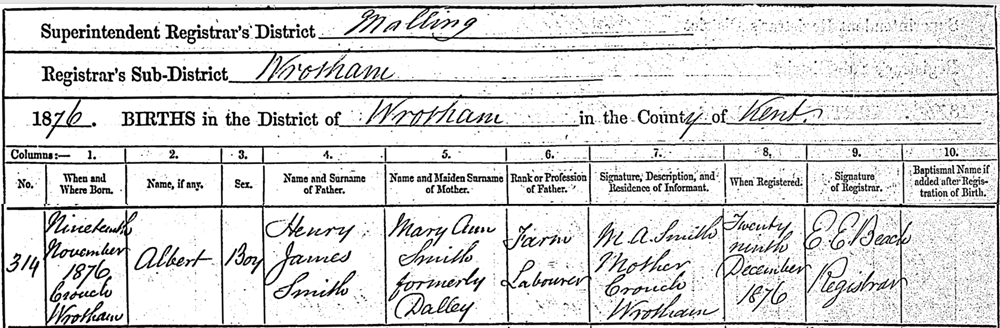 Superintendent Registrar's District Malling
Registrar's Sub-District Wrotham
1876. BIRTHS in the District of Wrotham in the County of Kent.
Columns:— 1. 2. 3. 4. 5. 6. 7. 8. 9. 10.
No. When and Where Born. Name, if any. Sex. Name and Surname of Father. Name and Maiden Surname of Mother. Rank or Profession of Father. Signature, Description, and Residence of Informant. When Registered. Signature of Registrar. Baptismal Name if added after Registration of Birth.
314
Nineteenth
November
1876
Crouch
Wrotham
Albert
Boy
Henry
James
Smith
Mary Ann
Smith
formerly
Dalley
Farm
Labourer
M A Smith
Mother
Crouch
Wrotham
Twenty
ninth
December
1876
E E Beach
Registrar